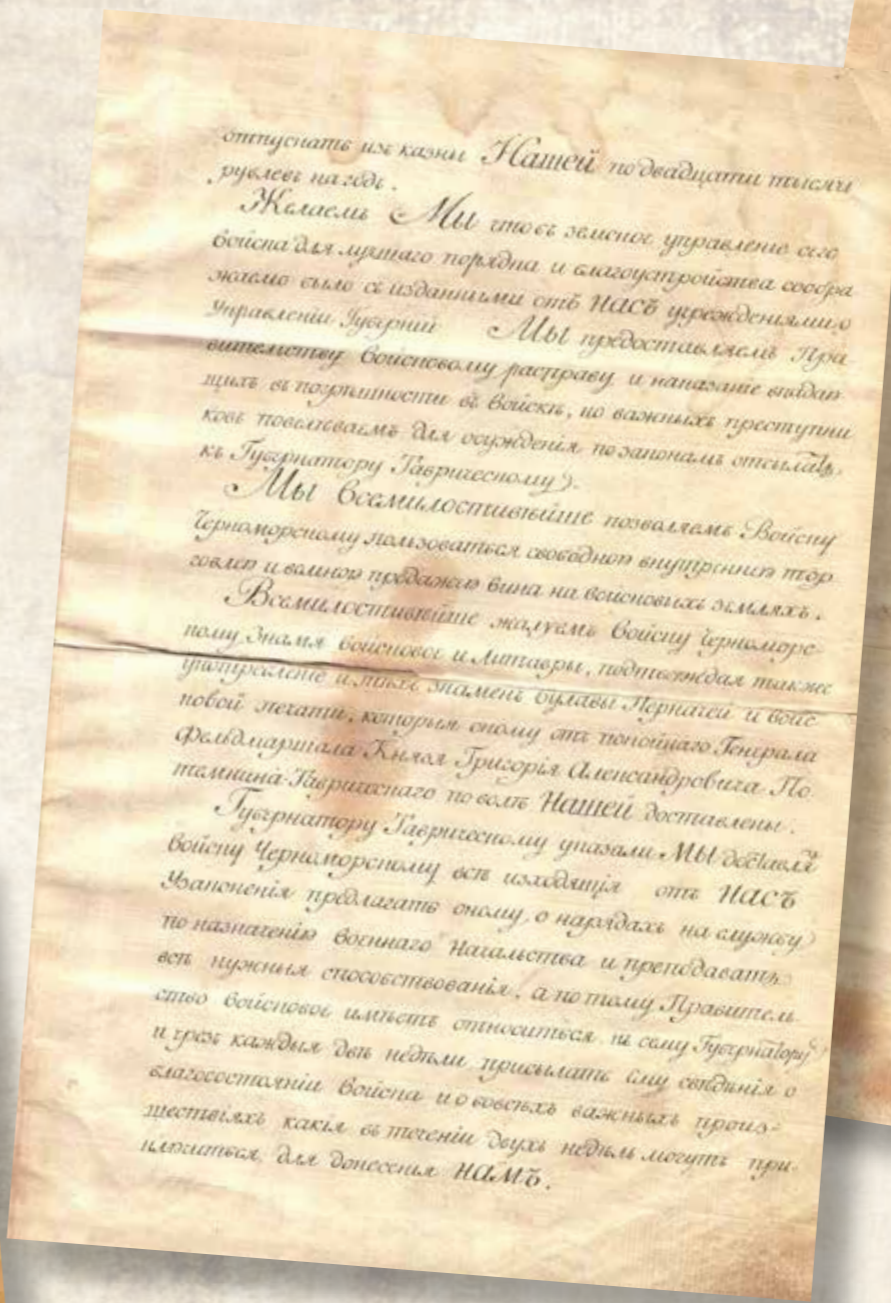 отпускать изъ казны Нашей по двадцати тысячъ
рублевъ на годъ.
Желаемъ Мы чтобъ земское управленіе сего
войска для лучшаго порядка и благоустройства сообра
жаемо было съ изданными отъ НАСЪ учрежденіями о
Управленіи Губерній МЫ предоставляемъ Пра
вительству Войсковому расправу и наказаніе впадаю
щихъ въ погрѣшности въ Войскѣ, но важныхъ преступни
ковъ повелѣваемъ для осужденія по законамъ отсылать
къ Губернатору Таврическому.
Мы Всемилостивѣйше позволяемъ Войску
Черноморскому пользоваться свободною внутреннею тор
говлею и вольною продажею вина на войсковыхъ земляхъ.
Всемилостивѣйше жалуемъ Войску Черноморс-
кому Знамя войсковое и Литавры, подтверждая также
употребленіе и тѣхъ знаменъ булавы Перначей и войс
ковой печати, которыя оному отъ покойнаго Генерала
Фельдмаршала Князя Григорія Александровича По
темкина-Таврическаго по волѣ Нашей доставлены.
Губернатору Таврическому указали МЫ доставля
Войску Черноморскому всѣ изходящія отъ НАСЪ
Узаконенія предлагать оному, о нарядахъ на службу
по назначенію Военнаго Начальства и преподавать
всѣ нужныя способствованія, а по тому Правитель
ство Войсковое имѣетъ относиться къ сему Губернатору
и чрез каждыя двѣ недѣли присылать ему свѣденія о
благосостояніи Войска и о вовсѣхъ важныхъ произ-
шествіяхъ какія въ теченіи двухъ недѣль могутъ при-
ключиться для донесенія НАМЪ.